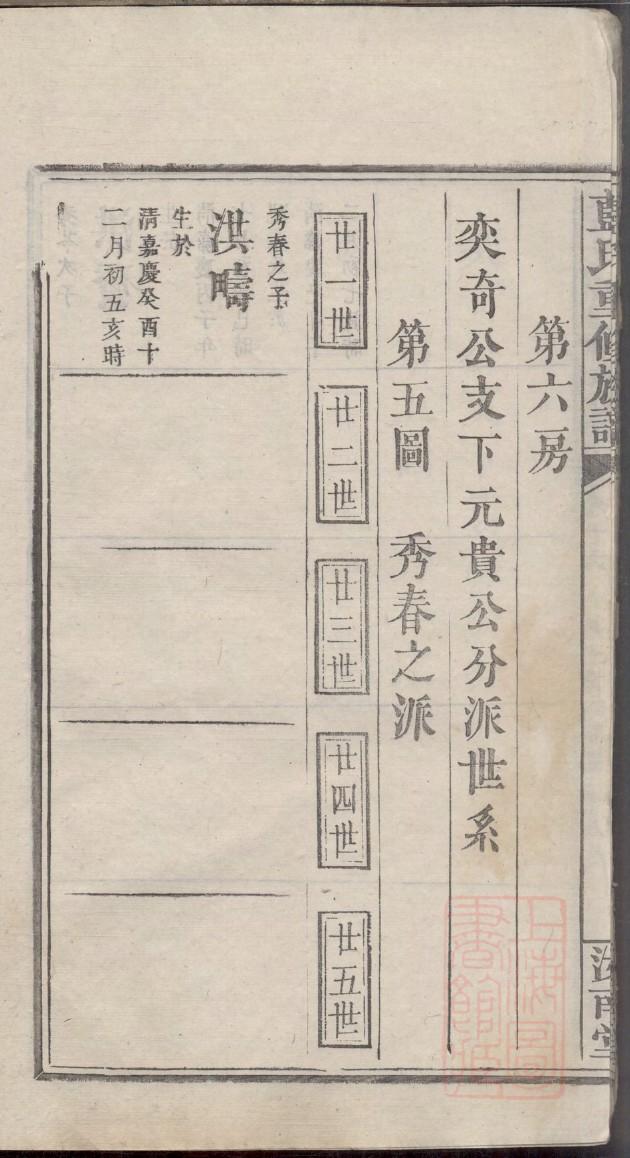 藍氏重修族譜
第六房
奕奇公支下元貴公分派世系
第五圖　秀春之派
廿一世
廿二世
廿三世
廿四世
廿五世
秀春之子
洪疇
生於
清嘉慶癸酉十
二月初五亥時
上海圖
書館藏